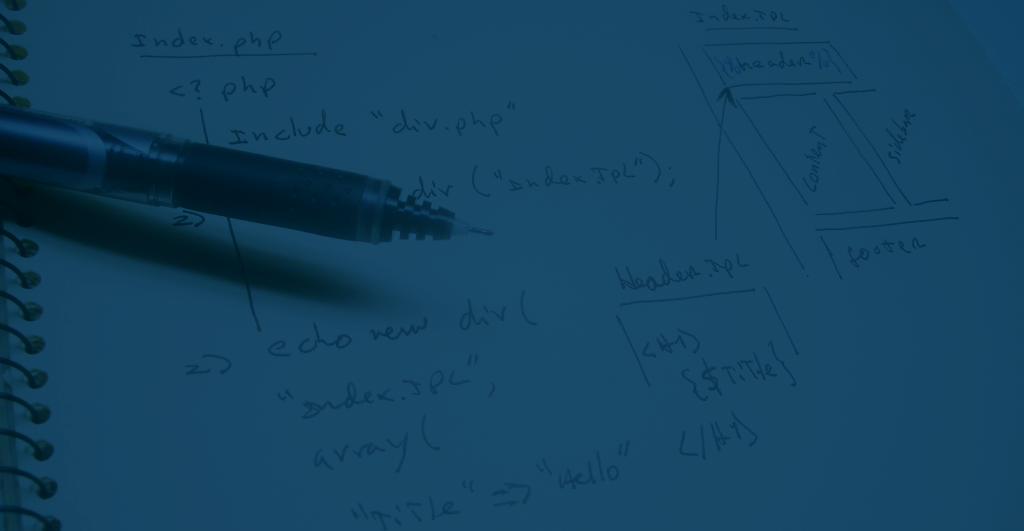 Index.php
<? php
Include "div.php"
div ("Index.TPL");
2)
echo new div (
"Index.TPL",
array (
"TiTle" => "Hello"
Index.TPL
Header
ConTenT
sidebar
footer
Header.TPL
<H1>
{$TiTle}
</H1>